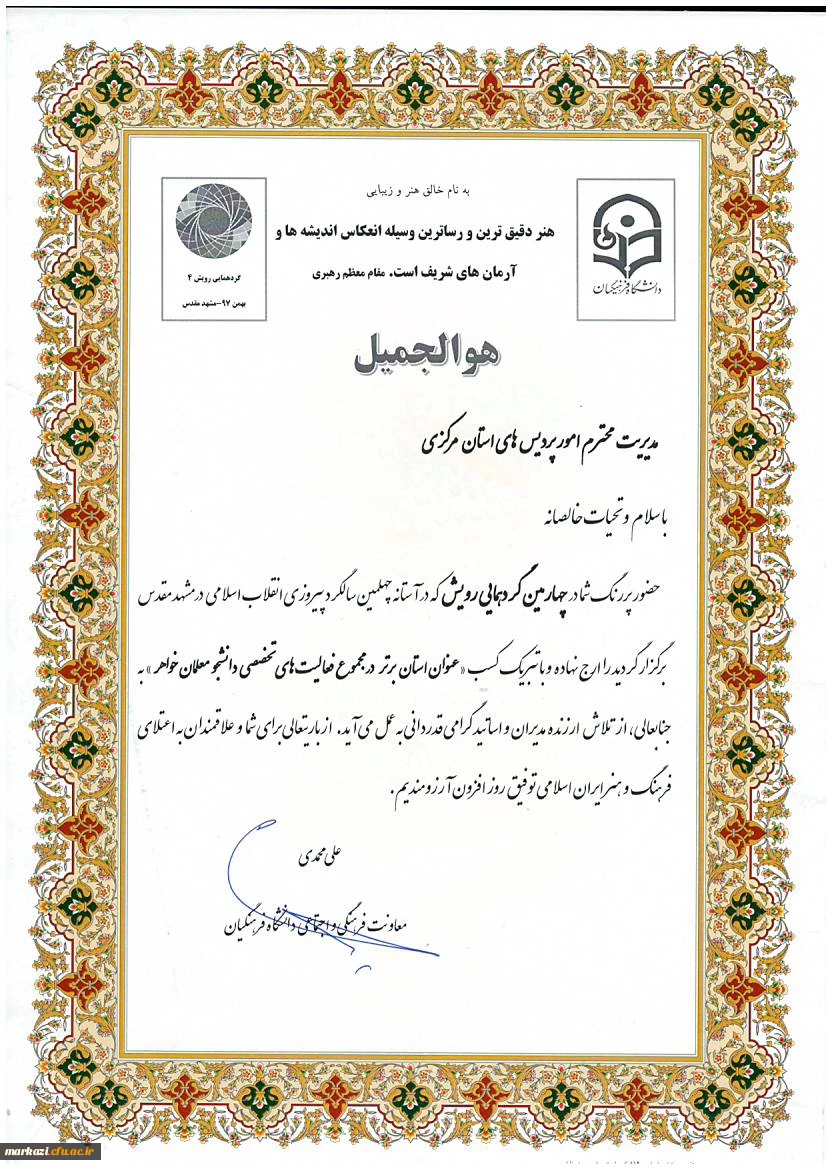 به نام خالق هنر و زیبایی
هنر دقیق ترین و رساترین وسیله انعکاس اندیشه ها و
آرمان های شریف است. مقام معظم رهبری
دانشگاه فرهنگیان
گردهمایی رویش ۴
بهمن ۹۷-مشهد مقدس
هوالجمیل
مدیریت محترم امور پردیس های استان مرکزی
با سلام و تحیات خالصانه
حضور پررنگ شما در چهارمین گردهمایی رویش که در آستانه چهلمین سالگرد پیروزی انقلاب اسلامی در مشهد مقدس
برگزار گردید را ارج نهاده و با تبریک کسب «عنوان استان برتر در مجموع فعالیت های تخصصی دانشجو معلمان خواهر» به
جنابعالی، از تلاش ارزنده مدیران و اساتید گرامی قدردانی به عمل می آید. از باریتعالی برای شما و علاقمندان به اعتلای
فرهنگ و هنر ایران اسلامی توفیق روز افزون آرزومندیم.
علی محمدی
معاونت فرهنگی و اجتماعی دانشگاه فرهنگیان
markazi.cfu.ac.ir